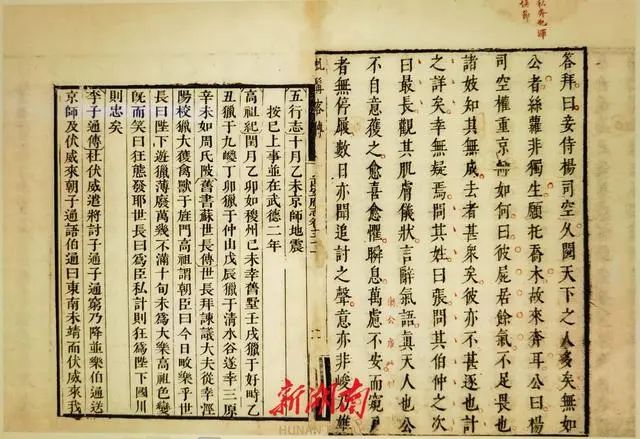 答拜曰妾侍楊司空久閱天下之人多矣無如
公者絲蘿非獨生願托喬木故來奔耳公曰楊
司空權重京師如何曰彼屍居餘氣不足畏也
諸妓知其無成去者甚衆矣彼亦不甚逐也計
之詳矣幸無疑焉問其姓曰張問其伯仲之次
曰最長觀其肌膚儀狀言辭氣語真天人也公
不自意獲之愈喜愈懼瞬息萬慮不安而窺戶
者無停屨數日亦聞追討之聲意亦非峻乃雄
虬髯客傳
二
五行志十月乙未京師地震
按已上事並在武德二年
高祖紀閏月乙卯如稷州已未幸舊墅壬戌獵于好畤乙
丑獵于九嵕丁卯獵于仲山戊辰獵于清水谷遂幸三原
辛未如周氏陂舊書蘇世長傳世長拜諫議大夫從幸涇
陽校獵大獲禽獸于旌門高祖謂朝臣曰今日畋樂乎世
長曰陛下遊獵薄廢萬幾不滿十旬未爲大樂高祖色變
既而笑曰狂態發耶世長曰爲臣私計則狂爲陛下國
則忠矣
李子通傳杜伏威遣將討子通子通窮乃降並樂伯通送
京師及伏威來朝子通語伯通曰東南未靖而伏威來我
新湖南
HUNAN